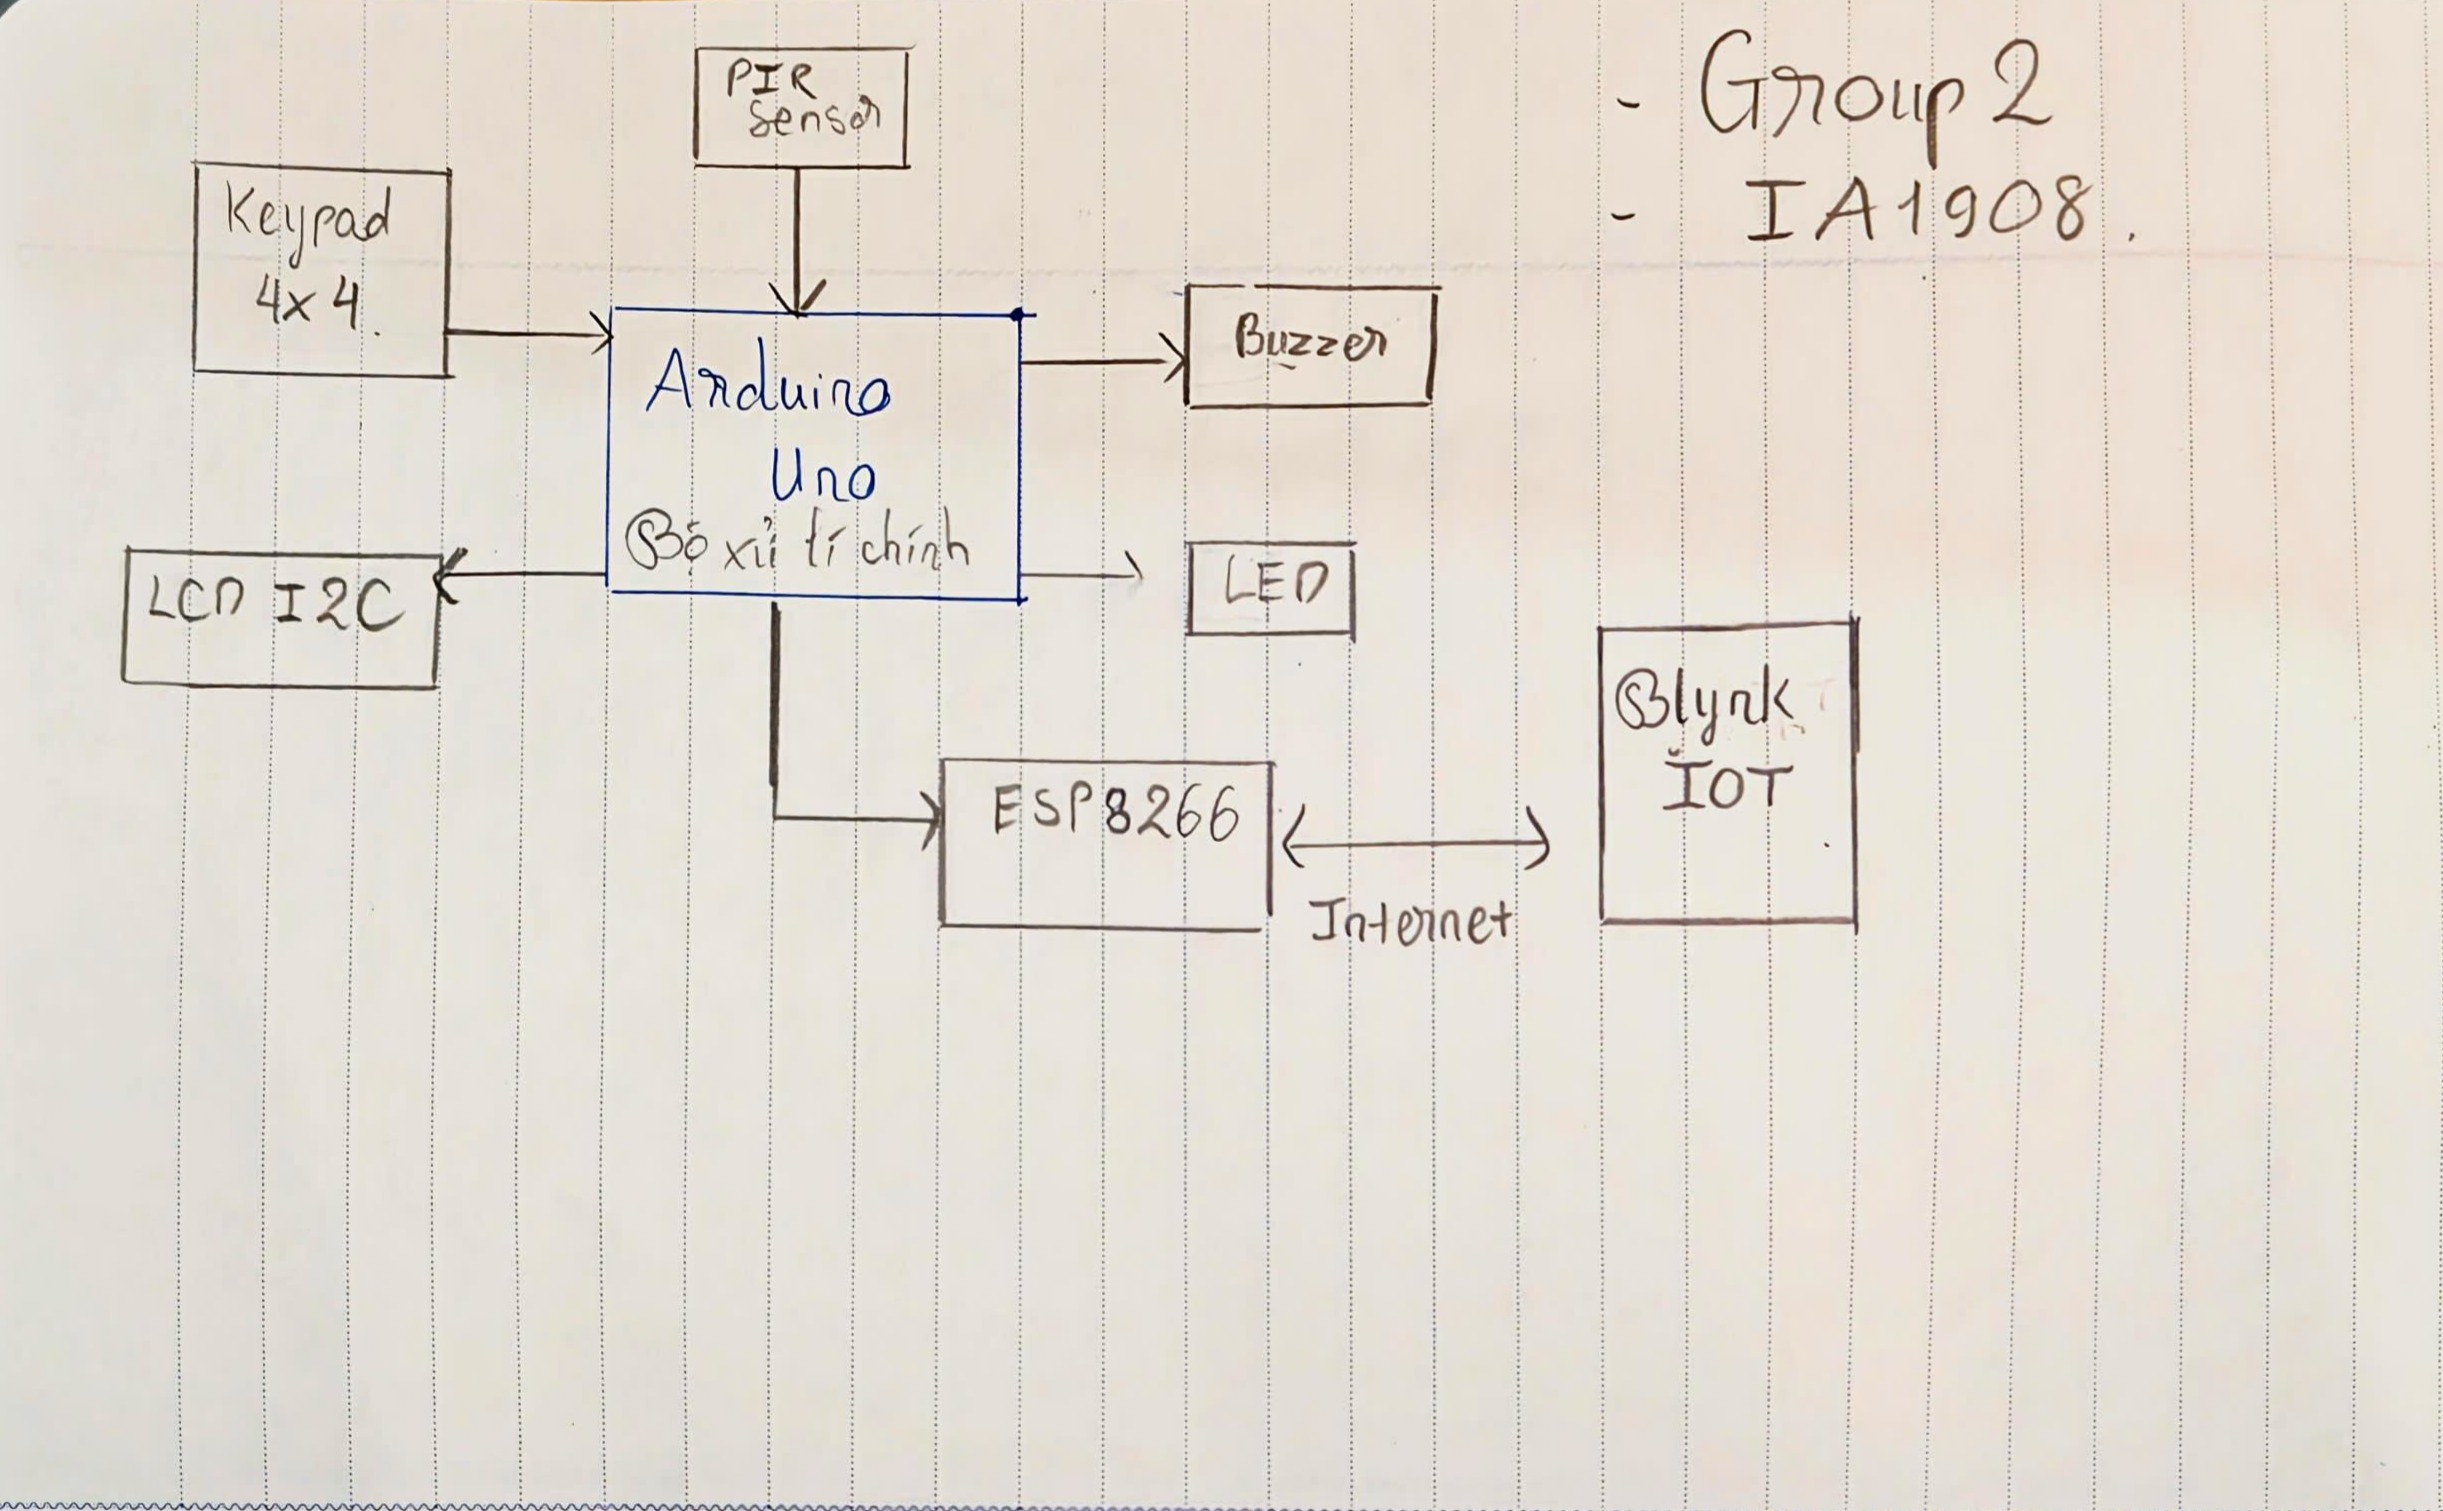 - Group 2
- IA1908.
PIR
Sensor
Keypad
4x4.
Arduino
Uno
Bộ xử lí chính
Buzzer
LCD I2C
LED
Blynk
IOT
ESP8266
Internet